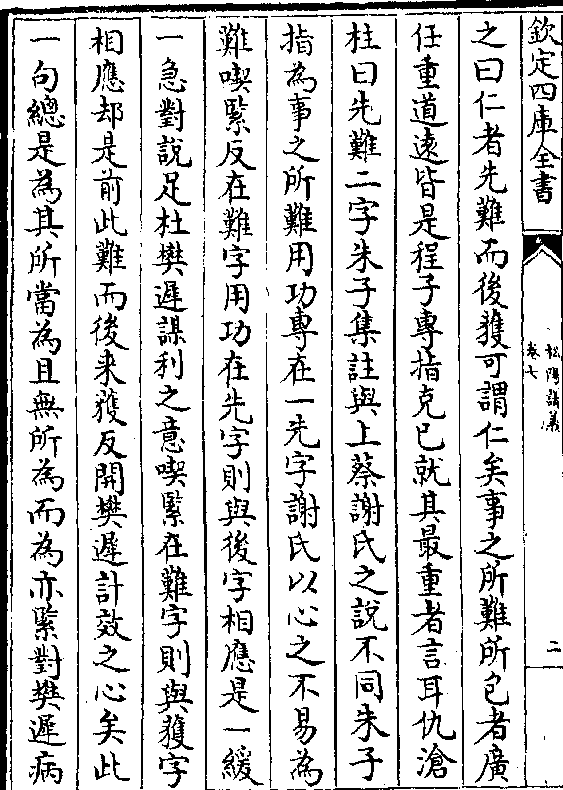 欽定四庫全書
松陽講義
卷七
二
之曰仁者先難而後獲可謂仁矣事之所難所包者廣
任重道逺皆是程子專指克已就其最重者言耳仇滄
柱曰先難二字朱子集註與上蔡謝氏之說不同朱子
指為事之所難用功專在一先字謝氏以心之不易為
難喫緊反在難字用功在先字則與後字相應是一緩
一急對說足杜樊遲謀利之意喫緊在難字則與獲字
相應却是前此難而後来獲反開樊遲計效之心矣此
一句總是為其所當為且無所為而為亦緊對樊遲病